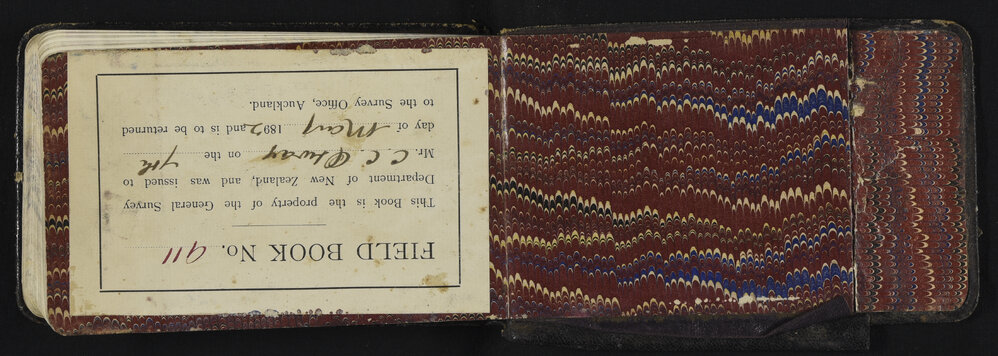 FIELD BOOK No. 911
This Book is the property of the General Survey
Department of New Zealand, and was issued to
Mr. C C Otway on the 7th
day of May 1892 and is to be returned
to the Survey Office, Auckland.